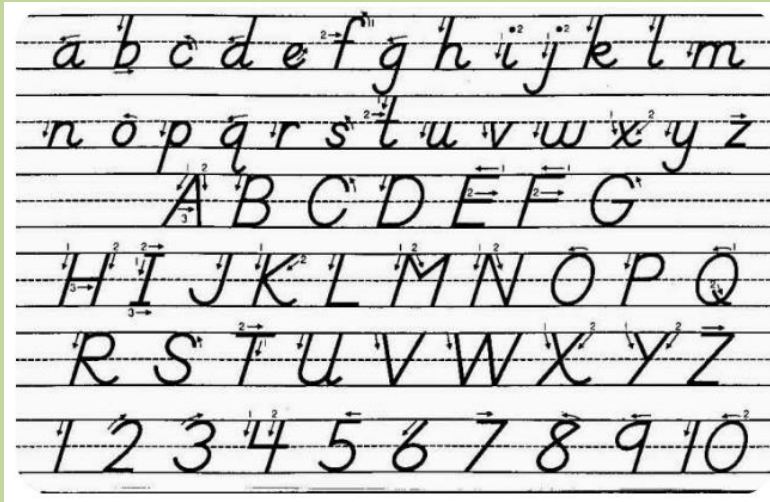 a b c d e f g h i j k l m
n o p q r s t u v w x y z
A B C D E F G
H I J K L M N O P Q
R S T U V W X Y Z
1 2 3 4 5 6 7 8 9 10